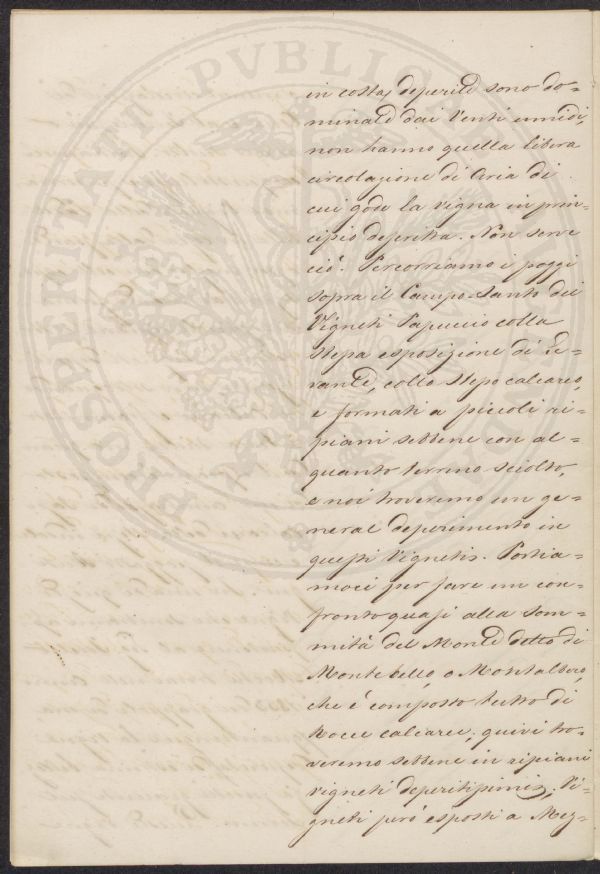 PROSPERITATI PVBLICAE
in costa, deperiti sono do=
minati dai Venti umidi,
non hanno quella libera
circolazione di Aria di
cui gode la vigna in prin=
cipio descritta. Non serve
ciò. Percorriamo i poggi
sopra il Campo=Santo dei
Vigneti Papuccio colla
stessa esposizione di Le=
vante, collo stesso calcareo,
e formati a piccoli ri=
piani sebbene con al=
quanto terreno sciolto,
e noi troveremo un ge=
neral deperimento in
questi Vigneti. Portia=
moci per fare un con=
fronto quasi alla som=
mità del Monte detto di
Monte bello, o Montalbero,
che è composto tutto di
Rocce calcaree, quivi tro=
veremo sebbene in ripiani
vigneti deperitissimi. Vi=
gneti però esposti a Mez=